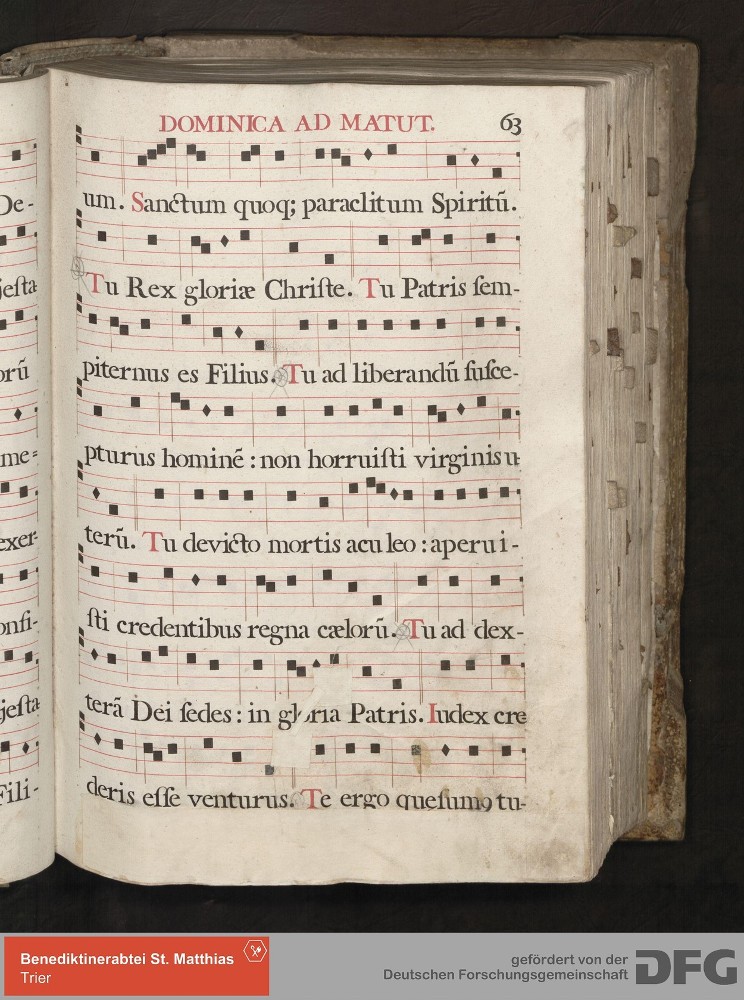 DOMINICA AD MATUT. 63
um. Sanctum quoq; paraclitum Spiritū.
Tu Rex gloriæ Chriſte. Tu Patris ſem-
piternus es Filius. Tu ad liberandū ſuſce-
pturus hominē : non horruiſti virginis u
terū. Tu devicto mortis acu leo : aperui-
ſti credentibus regna cælorū. Tu ad dex-
terā Dei ſedes : in gloria Patris. Iudex cre
deris eſſe venturus. Te ergo queſumꝰ tu-
De-
jeſta
orū
me=
exer-
onfi-
jeſta
Fili-
Benediktinerabtei St. Matthias
Trier
gefördert von der
Deutschen Forschungsgemeinschaft
DFG